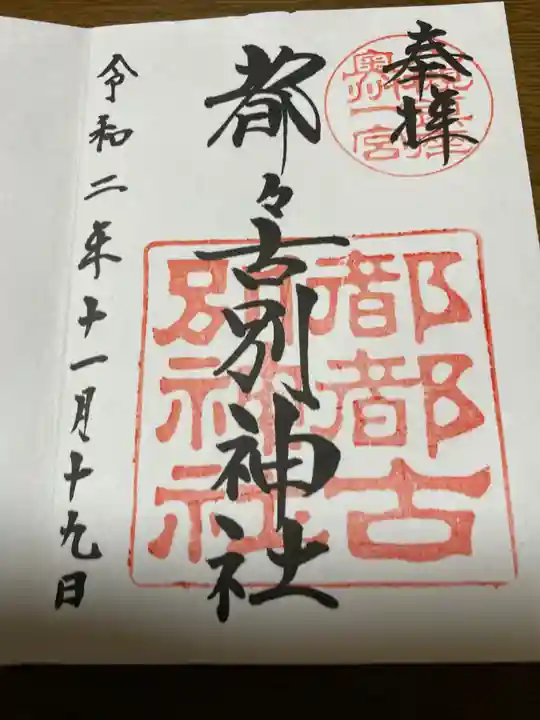 奉拝
奥州一宮
都々古別神社
都都古
別神社
令和二年十一月十九日